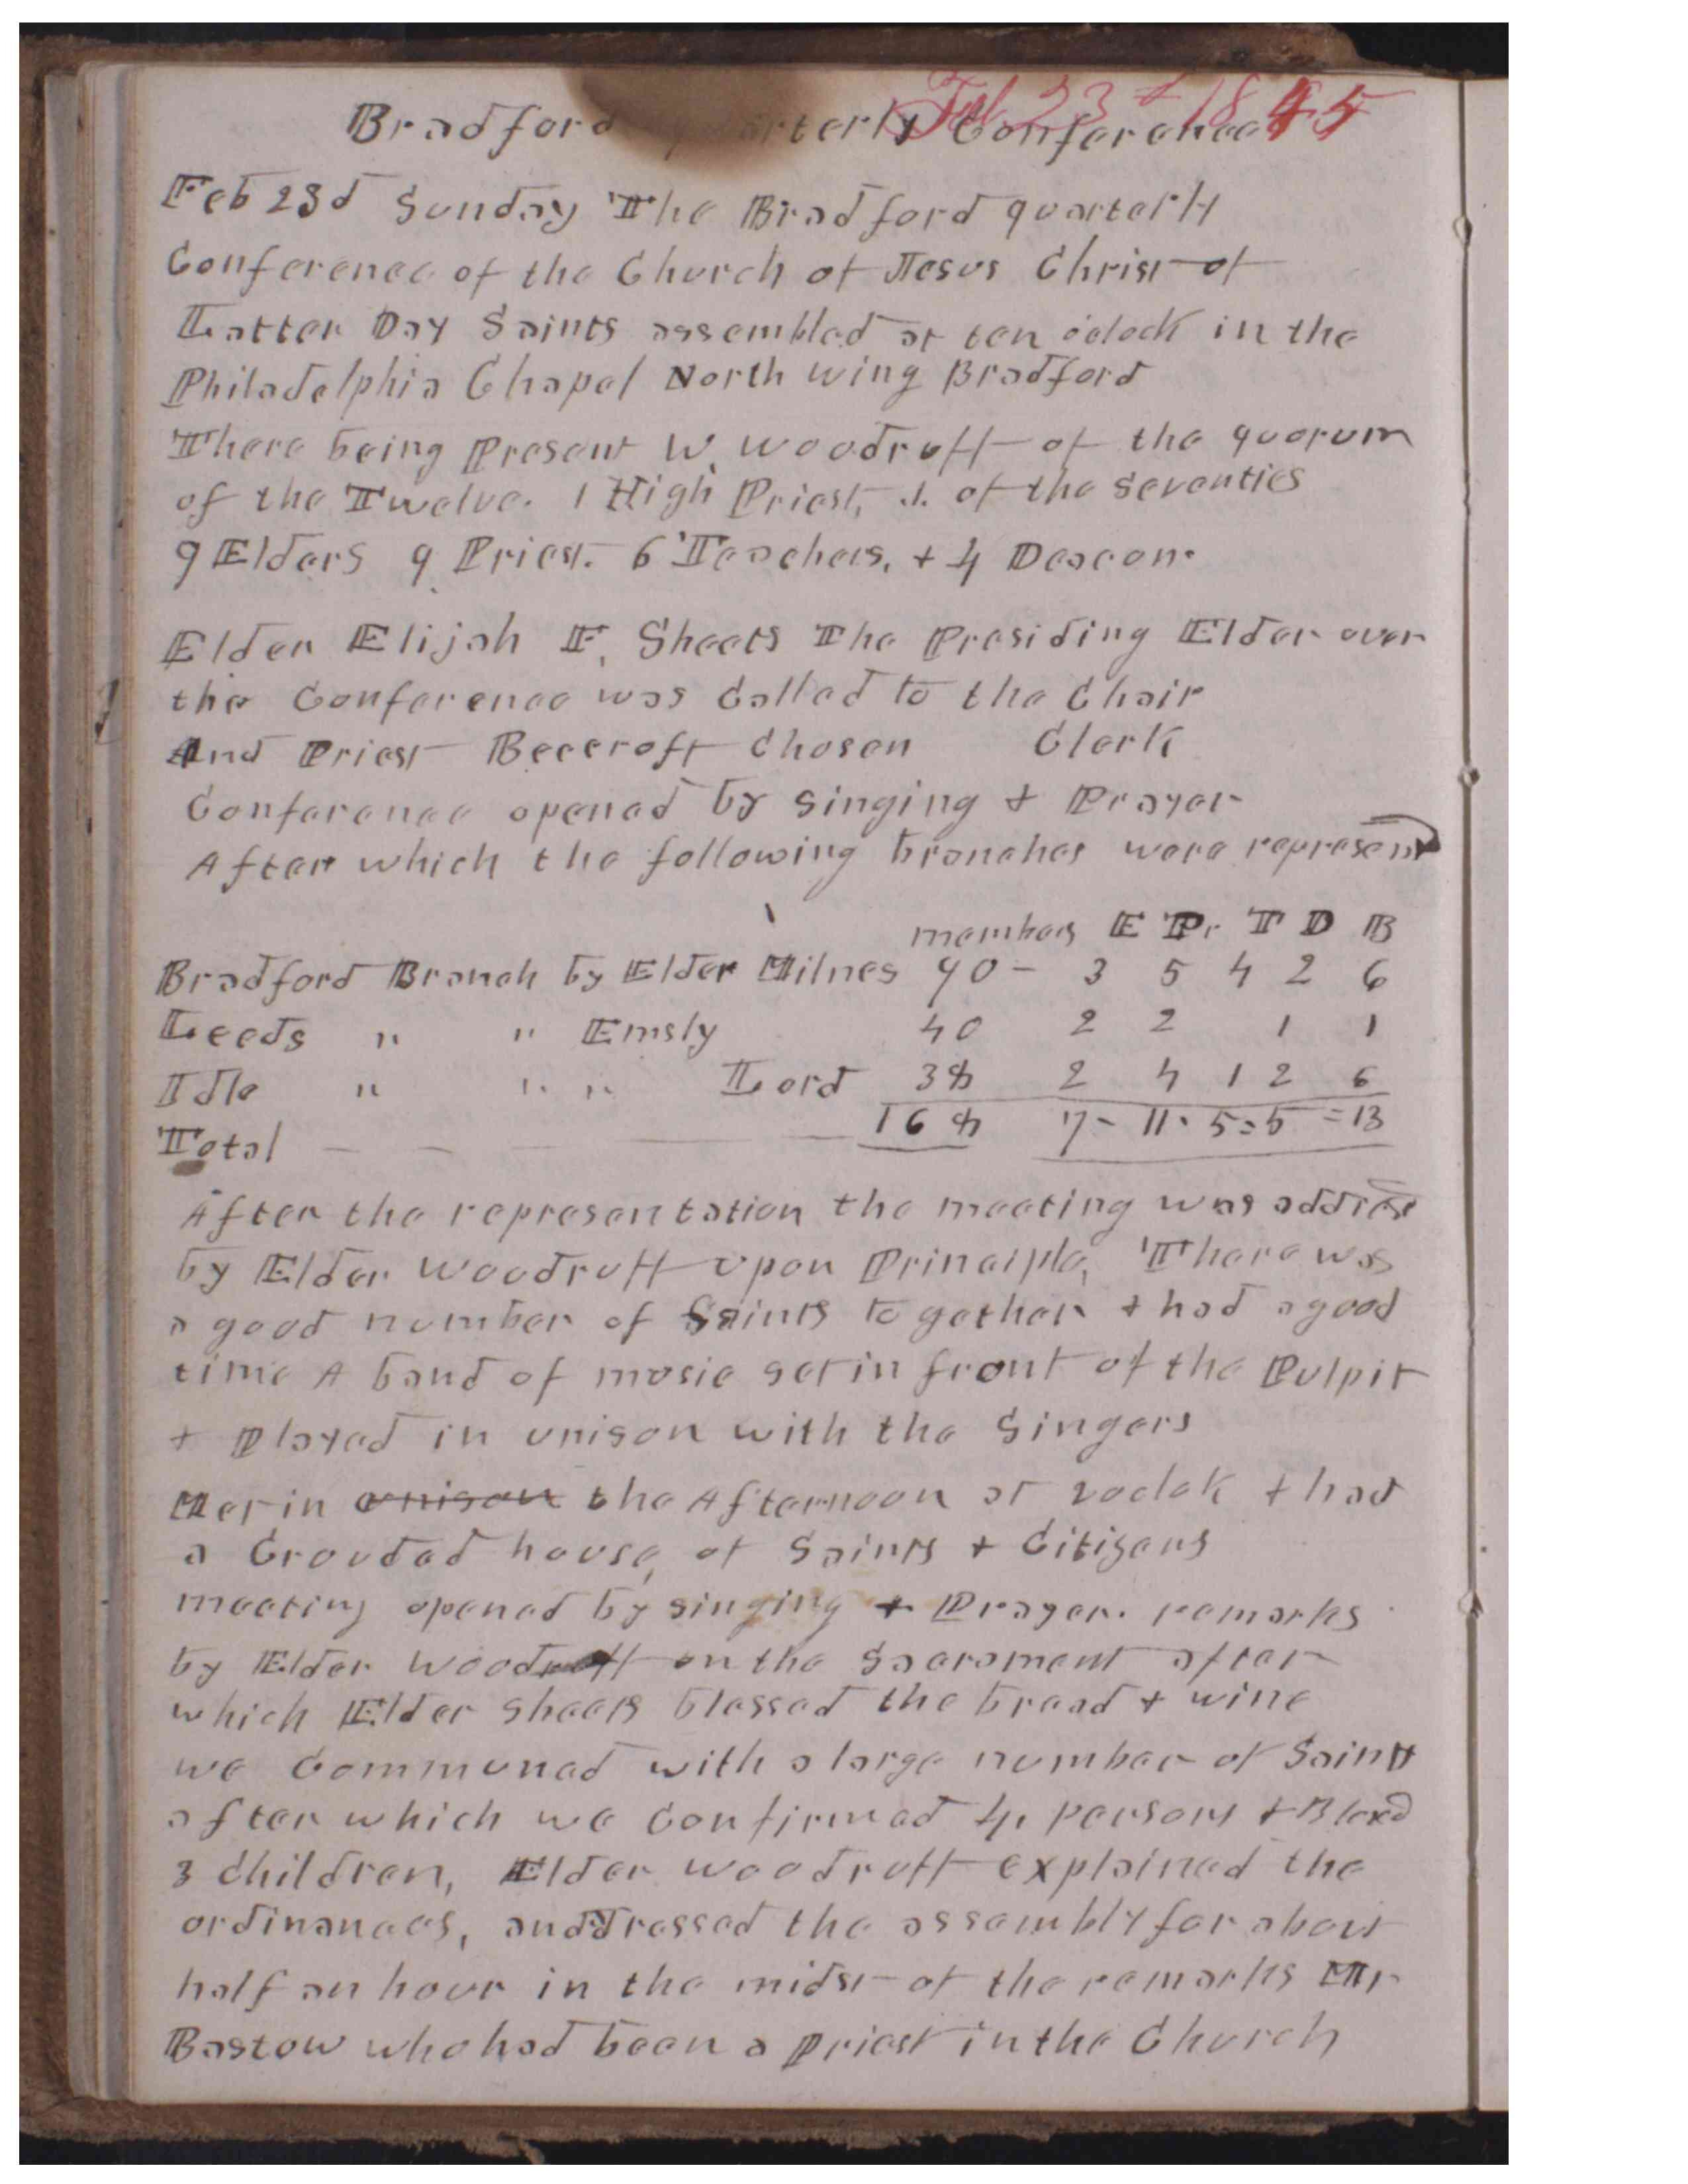 Feb 23d 1845
Bradford quarterly Conference
Feb 23d Sunday The Bradford quarterly
Conference of the Church of Jesus Christ of
Latter Day Saints assembled at ten oclock in the
Philadelphia Chapel North wing Bradford
There being Present W. Woodruff of the quorum
of the Twelve. 1 High Priest, 1. of the Seventies
9 Elders 9 Priest. 6 Teachers, + 4 Deacon.
Elder Elijah F. Sheets The Presiding Elder over
the Conference was Called to the Chair
And Priest Beecroft Chosen Clerk
Conference opened by Singing + Prayer
After which the following branches were represent
members E Pr T D B
Bradford Branch by Elder Milnes 90 - 3 5 4 2 6
Leeds " " Emsly 40 2 2 1 1
Idle " " " Lord 38 2 4 1 2 6
Total — — — — — 168 7 - 11. 5 = 5 = 13
After the representation the meeting was address
by Elder Woodruff upon Principle, There was
a good number of Saints together + had a good
time A band of music set in front of the Pulpit
+ Played in unison with the Singers
Met in unison the Afternoon at 2 oclok + had
a Crouded house, of Saints + Citizens
meeting opened by singing + Prayer. remarks
by Elder Woodruff on the Sacrament after
which Elder Sheets blessed the bread + wine
we Communed with a large number of Saints
after which we Confirmed 4, persons + Blexd
3 Children, Elder Woodruff explained the
ordinances, anddressed the assembly for about
half an hour in the midst of the remarks Mr
Bastow who had been a priest in the Church